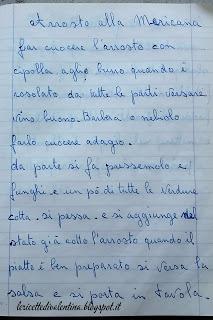 Arrosto alla Mericana
far cuocere l'arrosto con
cipolla aglio burro quando è
rosolato da tutte le parti versare
vino buono. Barbera o nebiolo
farlo cuocere adagio.
da parte si fa pressemolo e
funghi e un pò di tutte le verdure
cotta. si passa. e si aggiunge nel
stato già cotto l'arrosto quando il
piatto è ben preparato si versa la
salsa e si porta in tavola.
lericettedivalentina.blogspot.it